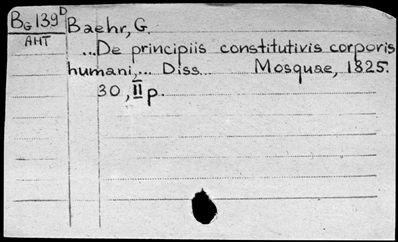 BG 139D Baehr, G.
АНТ
...De principiis constitutivis corporis
humani,... Diss... Mosquae, 1825.
30, II p.